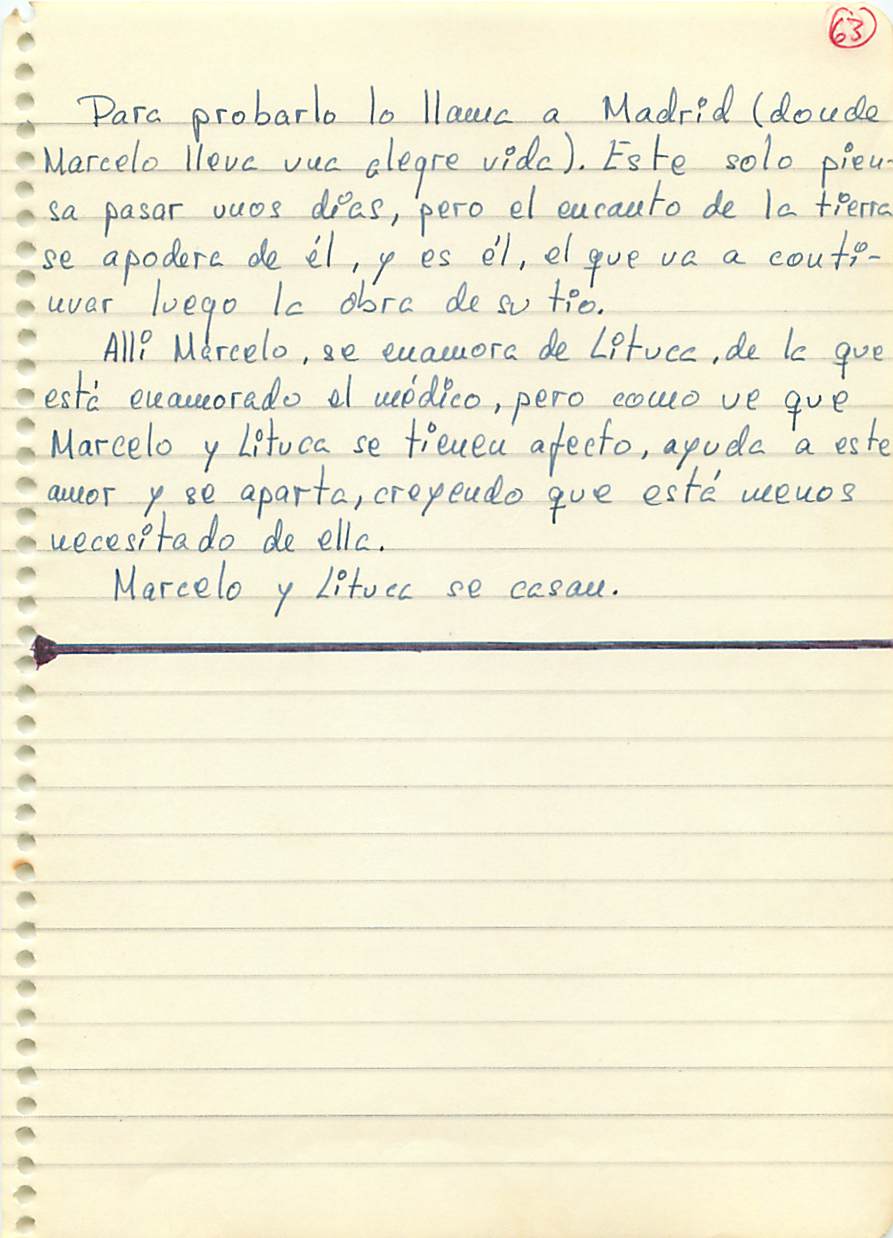 63
Para probarlo lo llama a Madrid (donde
Marcelo lleva una alegre vida). Este solo pien-
sa pasar unos días, pero el encanto de la tierra
se apodera de él, y es él, el que va a conti-
nuar luego la obra de su tío.
Allí Marcelo, se enamora de Lituca, de la que
está enamorado el médico, pero como ve que
Marcelo y Lituca se tienen afecto, ayuda a este
amor y se aparta, creyendo que está menos
necesitado de ella.
Marcelo y Lituca se casan.